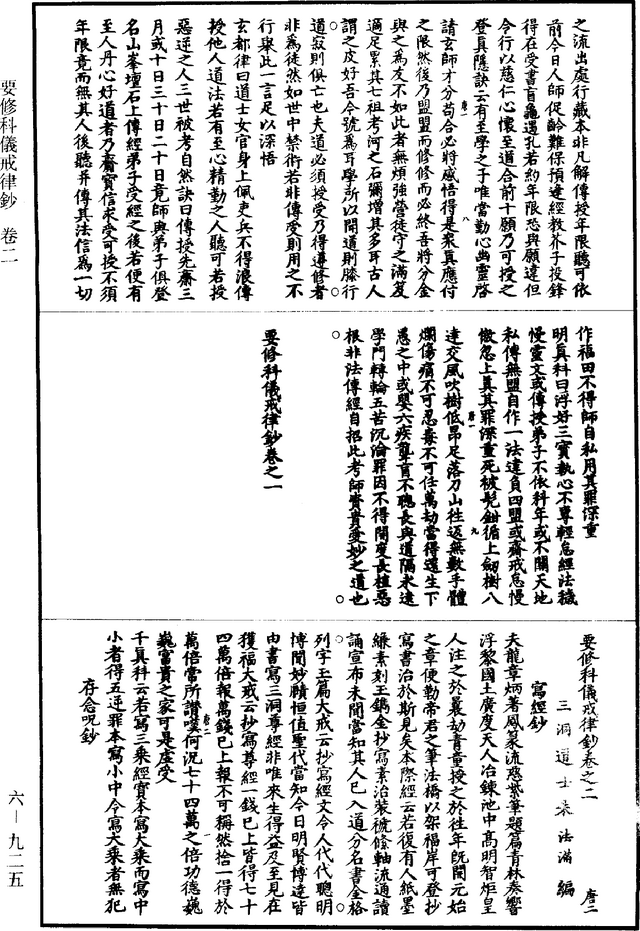 之流出處行藏本非凡解傳授年限聽可依
前今日人師促齡難保預違經教芥子投鋒
得在受書盲龜遇孔若約年限恐與願違但
令行以慈仁心懷至道合前十願乃可授之
登真隱訣云有至學之子唯當勤心幽靈啓
請玄師才分苟合必將感悟得是衆真應付
之限然後乃盟盟而修修而必終吾將分金
與之爲友不如此者無煩強營徒守之滿笈
適足累其七祖考河之石彌增其多耳古人
謂之皮好吾今號爲耳學所以聞道則勝行
道寂則俱亡也夫道必須授受乃得遵修者
非爲徒然如世中禁術若非傳受則用之不
行舉此一言足以深悟
玄都律曰道士女官身上佩吏兵不得浪傳
授他人道法若有至心精勤之人聽可若授
惡逆之人三世被考自然訣曰傳授先齋三
月或十日三十日二十日竟師與弟子俱登
名山峯壇石上傳經弟子受經之後若便有
至人丹心好道者乃齎寶信求受可授不須
年限竟而無其人後聽并傳其法信爲一切
作福田不得師自私用其罪深重
明真科曰浮好三寶執心不專輕怠經法穢
慢靈文或傳授弟子不依科年或不關天地
私傳無盟自作一法違負四盟或齋戒怠慢
傲忽上真其罪深重死被髡鉗循上劒樹八
達交風吹樹低昂足落刀山往返無數手體
爛傷痛不可忍毒不可任萬劫當得還生下
愚之中或嬰六疾聾盲不聰長與道隔永違
學門轉輪五苦沉淪罪因不得開度長植惡
根非法傳經自招此考師寶貴受妙之道也
要修科儀戒律鈔卷之一
要修科儀戒律鈔卷之二
三洞道士朱法滿編
寫經鈔
夫龍章炳著鳳篆流慈紫筆題篇青林奏響
浮黎國土廣度天人冶鍊池中髙明智炬皇
人注之於曩劫青童授之於往年旣開元始
之章便勒帝君之筆法橋以架福岸可登抄
寫書治於斯見矣本際經云若復有人紙墨
縑素刻玉鐫金抄寫素治裝褫絛軸流通讀
誦宣布未聞當知其人已入道分名書金格
列字玉篇大戒云抄寫經文令人代代聰明
博聞妙賾恒值聖代當知今日明賢博達皆
由書寫三洞尊經非唯來生得益及至見在
獲福大戒云抄寫尊經一錢已上皆得七十
四萬倍報萬錢已上報不可稱然捨一得於
萬倍當所讃嘆何況七十四萬之倍功德巍
巍富貴之家可是虛受
千真科云若寫三乘經實本寫大乘而寫中
小者得五逆罪本寫小中令寫大乘者無犯
存念呪鈔
要修科儀戒律鈔 卷二
六－九二五